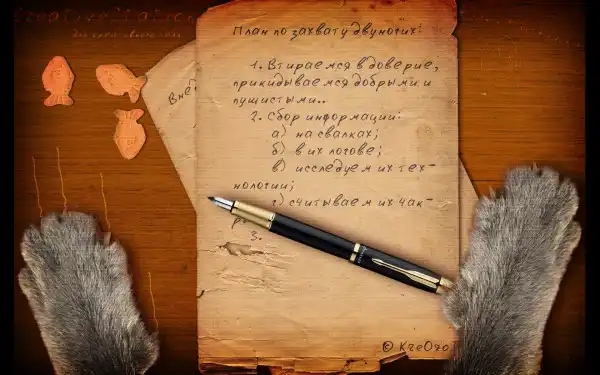 План по захвату двуногих:
1. Втираемся в доверие,
прикидываемся добрыми и
пушистыми..
2. Сбор информации:
а) на свалках;
б) в их логове;
в) исследуем их тех-
нологии;
г) считываем их чак-
р
3.
Внед
© KreOzo